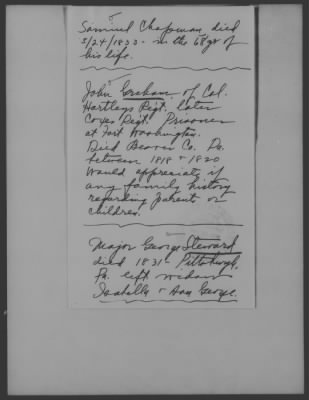 Samuel Chapman died
5/24/1833 - in the 68 yr of
his life.
John Graham of Col.
Hartleys Regt. later
Coxes Regt. Prisoner
at Fort Washington.
Died Beaver Co. Pa.
between 1818 + 1820
Would appreciate if
any family history
regarding parents or
children.
Major George Steward
died 1831 - Pittsburgh,
Pa. left widow
Isabella + son George.